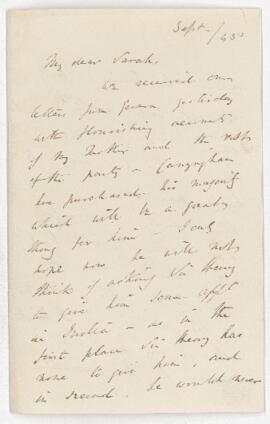 Sept /65
My dear Sarah,
We received our
letters from Geneva yesterday
with flourishing accounts
of my Mother and the rest
of the party — Conyngham
has purchased his majority
which will be a great
thing for him — I only
hope now he will not
think of asking Sir Henry
to give him some appt
in India — as in the
first place Sir Henry has
none to give him, and
in second, he would never